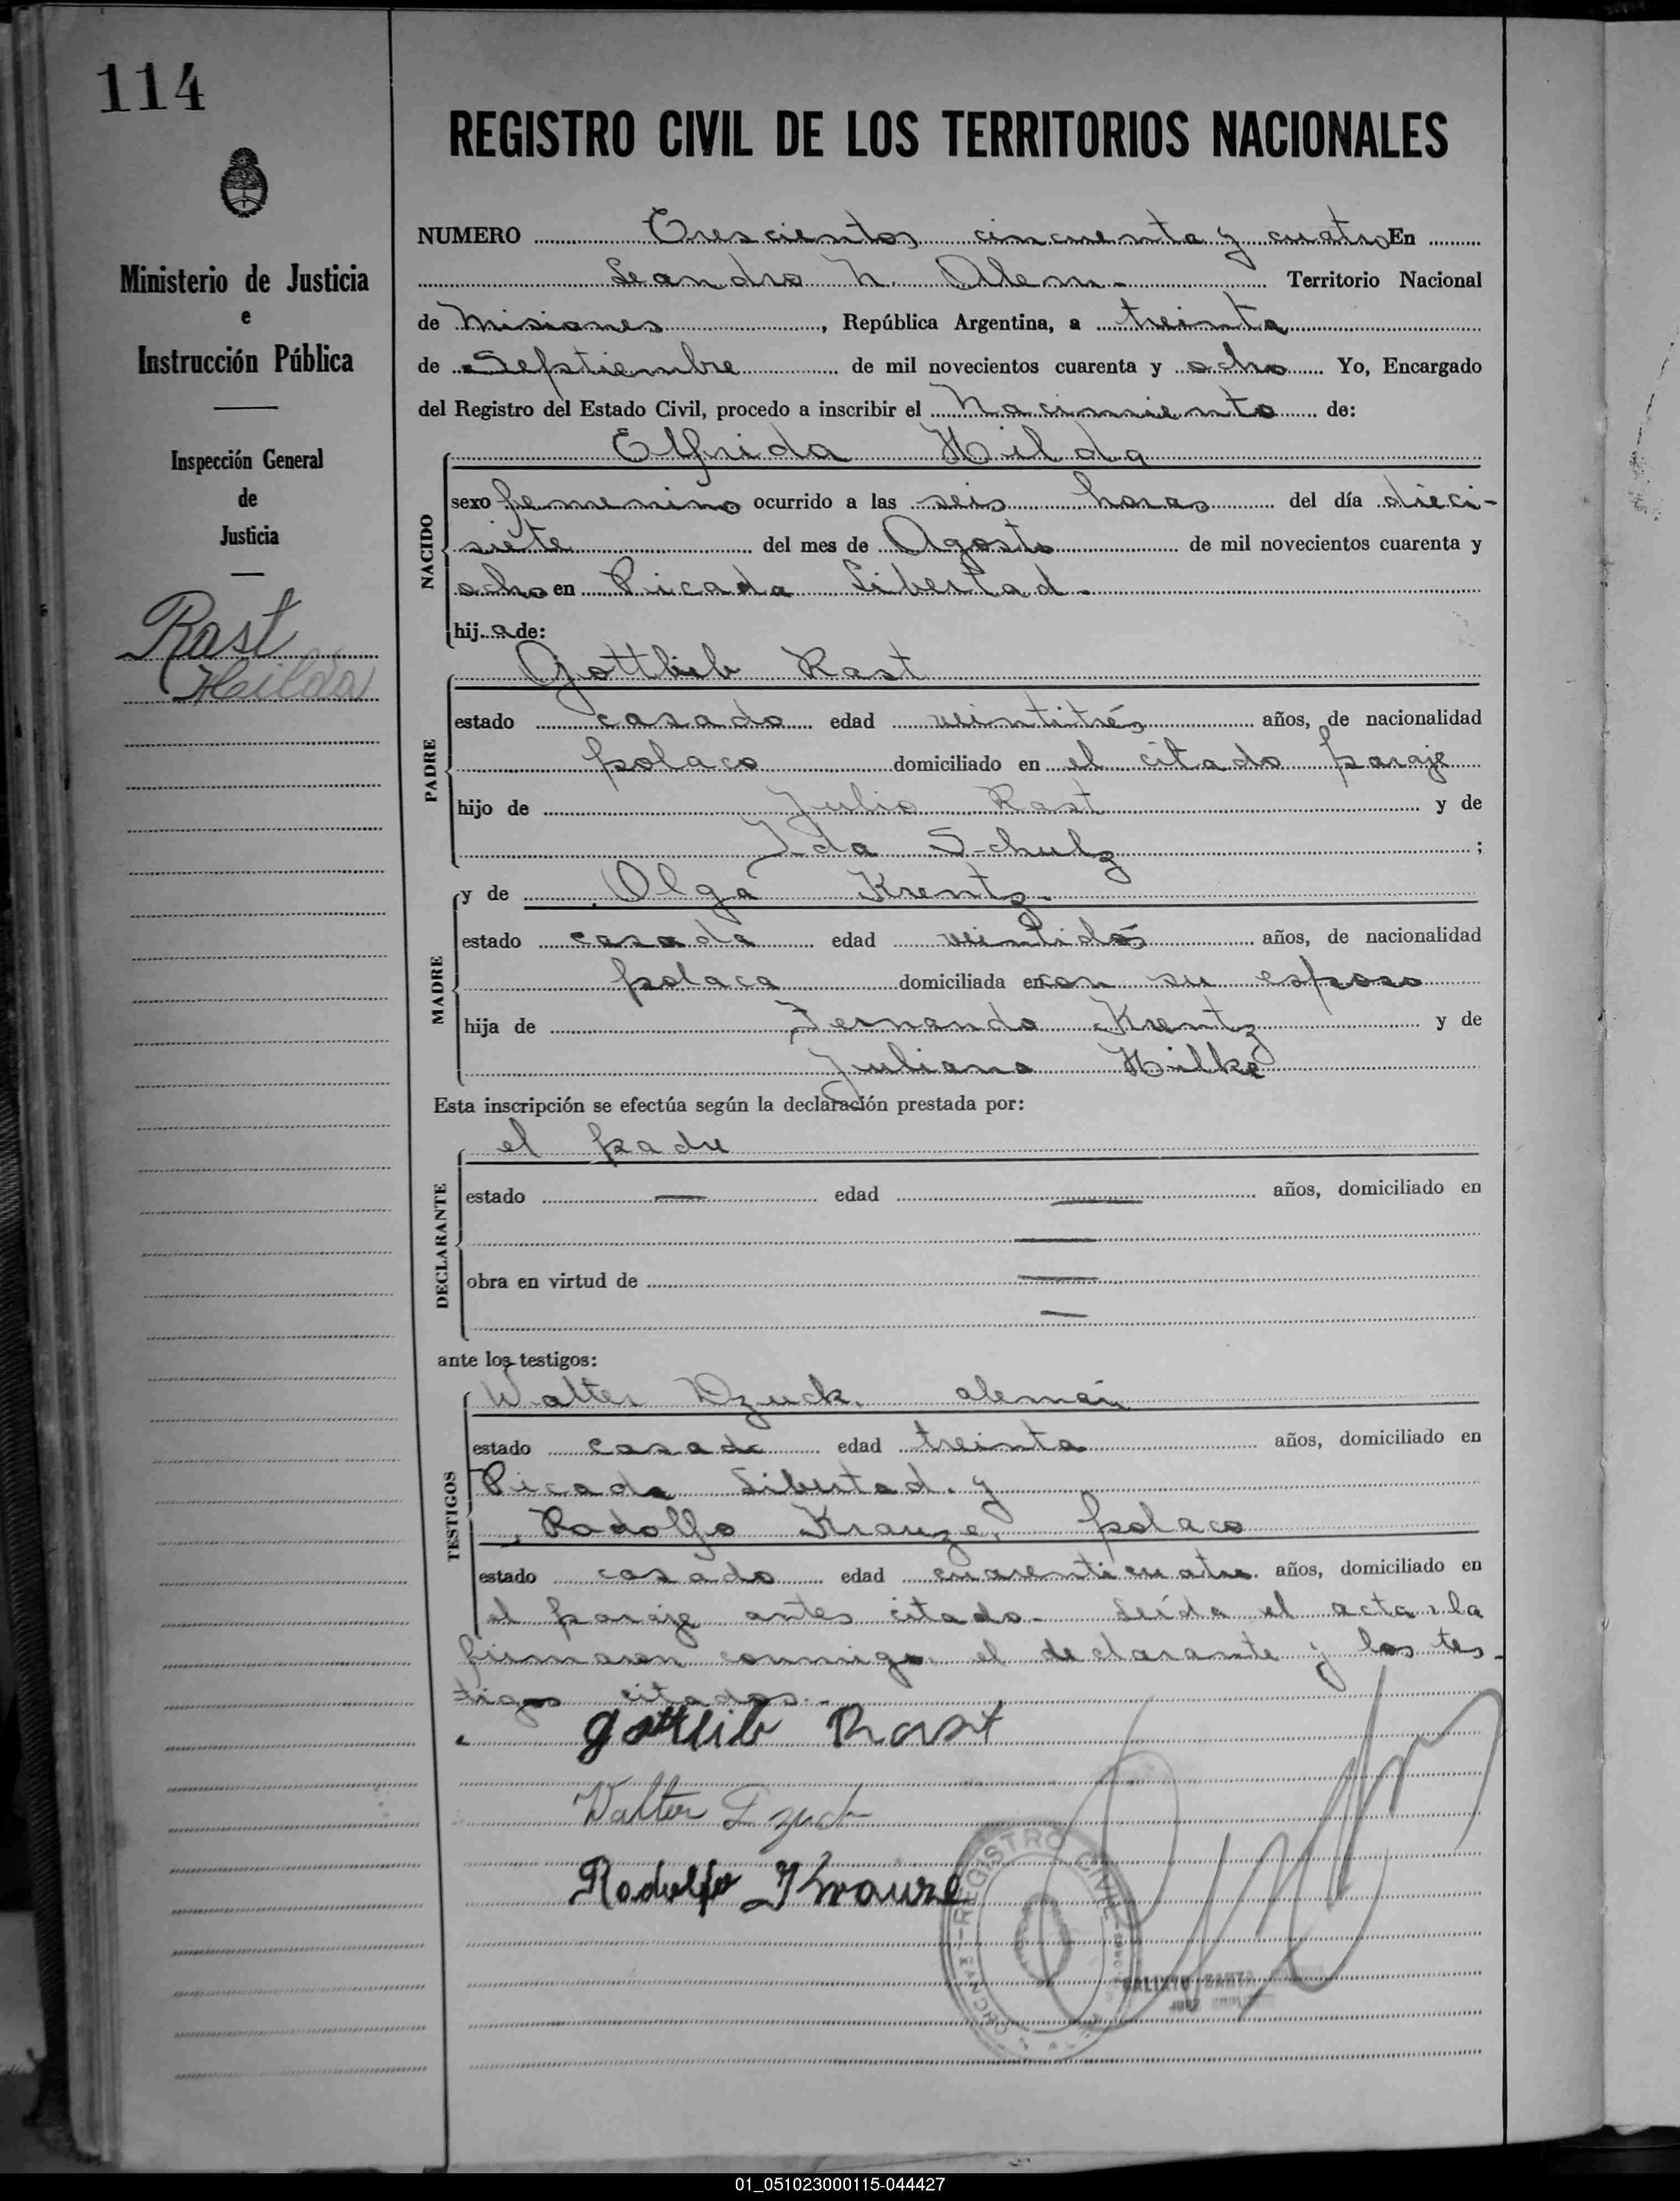 114
Ministerio de Justicia
e
Instrucción Pública
Inspección General
de
Justicia
Rast
Hilda
REGISTRO CIVIL DE LOS TERRITORIOS NACIONALES
NUMERO Trescientos cincuenta y cuatro En
Leandro N. Alem - Territorio Nacional
de Misiones, República Argentina, a treinta
de Septiembre de mil novecientos cuarenta y ocho Yo, Encargado
del Registro del Estado Civil, procedo a inscribir el Nacimiento de:
NACIDO
Elfrida Hilda
sexo femenino ocurrido a las seis horas del día dieci-
siete del mes de Agosto de mil novecientos cuarenta y
ocho en Picada Libertad.
hija de:
PADRE
Gottlieb Rast
estado casado edad veintitrés años, de nacionalidad
polaco domiciliado en el citado paraje
hijo de Julio Rast y de
Ida Schulz;
MADRE
y de Olga Krentz.
estado casada edad veintidós años, de nacionalidad
polaca domiciliada en con su esposo
hija de Fernando Krentz y de
Juliana Hilke
Esta inscripción se efectúa según la declaración prestada por:
DECLARANTE
el padre
estado — edad — años, domiciliado en
—
obra en virtud de —
—
ante los testigos:
TESTIGOS
Walter Dzuck, alemán
estado casado edad treinta años, domiciliado en
Picada Libertad. y
Rodolfo Krauze, polaco
estado casado edad cuarenticuatro años, domiciliado en
el paraje antes citado. Leída el acta, la
firmaron conmigo el declarante y los tes-
tigos citados.-
Gottlieb Rast
Walter Dzuck
Rodolfo Krauze
REGISTRO CIVIL
CALIXTO
JUEZ
01_051023000115-044427